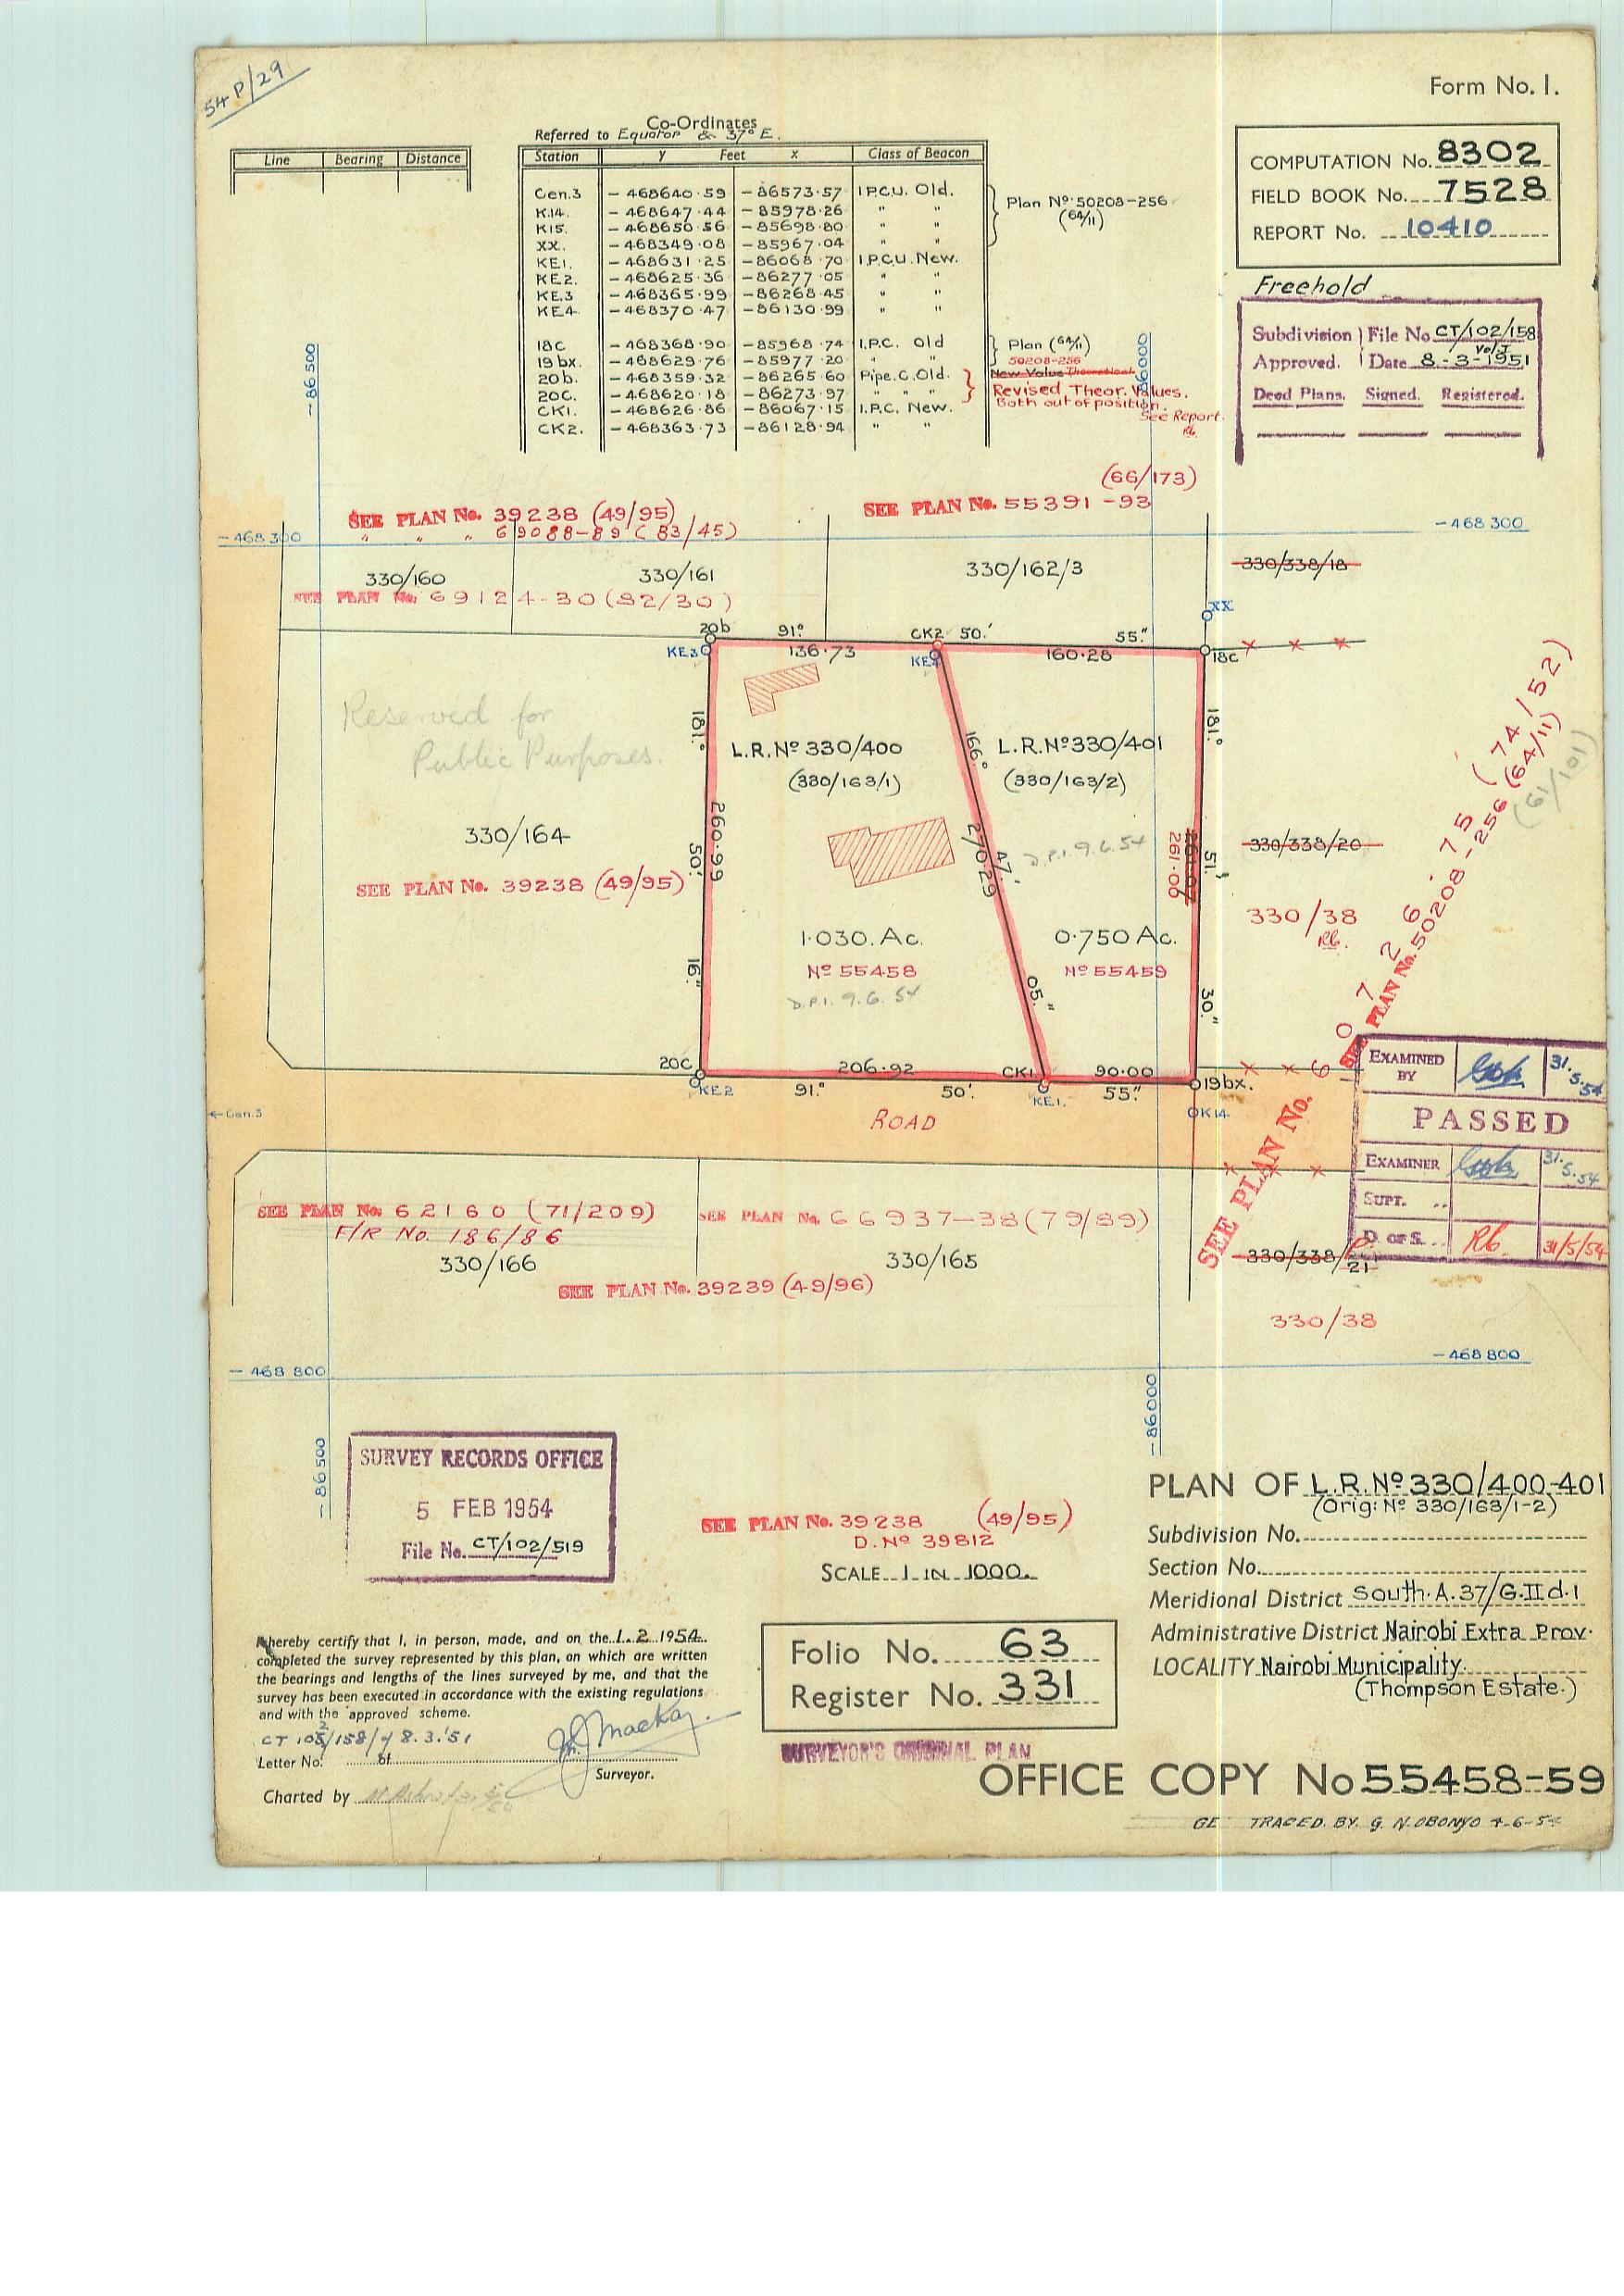 54 P/29
Form No. 1.
Co-Ordinates
Referred to Equator & 37° E.
Line Bearing Distance
Station y Feet x Class of Beacon
Cen.3 -468640.59 -86573.57 I.P.C.U. Old.
K.14. -468647.44 -85978.26 " "
K15. -468650.56 -85698.80 " "
XX. -468349.08 -85967.04 " "
KE1. -468631.25 -86068.70 I.P.C.U. New.
KE2. -468625.36 -86277.05 " "
KE.3 -468365.99 -86268.45 " "
KE4. -468370.47 -86130.99 " "
Plan Nº 50208-256
(64/11)
18c -468368.90 -85968.74 I.P.C. Old
19bx. -468629.76 -85977.20 " "
20b. -468359.32 -86265.60 Pipe.C.Old.
20c. -468620.18 -86273.97 " " "
CK1. -468626.86 -86067.15 I.P.C. New.
CK2. -468363.73 -86128.94 " "
Plan (64/11)
50208-256
New Value Theoretical
Revised Theor. Values.
Both out of position.
See Report.
Rb.
COMPUTATION No. 8302
FIELD BOOK No. 7528
REPORT No. 10410
Freehold
Subdivision File No CT/102/158
Vol.I
Approved. Date 8-3-1951
Deed Plans. Signed. Registered.
-86500
-86000
(66/173)
SEE PLAN No. 39238 (49/95)
" " " 69088-89 (83/45)
SEE PLAN No. 55391-93
-468300
-468300
330/160
330/161
330/162/3
330/338/18
SEE PLAN No. 69124-30 (82/30)
XX
20b 91° CK2 50.' 55."
KE3 136.73 KE4 160.28 18c
Reserved for
Public Purposes.
181° 50' 16"
260.99
L.R.Nº 330/400
(330/163/1)
L.R.Nº 330/401
(330/163/2)
166° 47' 05."
270.29
181° 51' 30."
261.00
330/164
SEE PLAN No. 39238 (49/95)
D.P.1. 9.6.54
330/338/20
330/38
Rb.
1.030. Ac.
Nº 55458
D.P.1. 9.6.54
0.750 Ac.
Nº 55459
SEE PLAN No. 60726-75 (74/52)
SEE PLAN No. 50208-256 (64/11)
(61/101)
20c 206.92 CK1 90.00 19bx.
KE2 91° 50' KE1. 55" K14
←Cen.3
ROAD
EXAMINED BY 31.5.54
PASSED
EXAMINER 31.5.54
SUPT.
D. OF S. Rb. 31/5/54
SEE PLAN No. 62160 (71/209)
F/R No. 186/86
330/166
SEE PLAN No. 66937-38 (79/89)
330/165
SEE PLAN No. 39239 (49/96)
330/338/21
330/38
-468800
-468800
-86500
-86000
SURVEY RECORDS OFFICE
5 FEB 1954
File No. CT/102/519
SEE PLAN No. 39238 (49/95)
D. Nº 39812
SCALE 1 IN 1000.
PLAN OF L.R.Nº 330/400-401
(Orig: Nº 330/163/1-2)
Subdivision No.
Section No.
Meridional District South.A.37/G.II d.1
Administrative District Nairobi Extra Prov.
LOCALITY Nairobi Municipality.
(Thompson Estate.)
I hereby certify that I, in person, made, and on the 1.2.1954.
completed the survey represented by this plan, on which are written
the bearings and lengths of the lines surveyed by me, and that the
survey has been executed in accordance with the existing regulations
and with the approved scheme.
8.3.'51
Letter No. of
Mackay.
Surveyor.
Charted by
Folio No. 63
Register No. 331
SURVEYOR'S ORIGINAL PLAN
OFFICE COPY No 55458-59
TRACED. BY. G. N. OBONYO 4-6-54